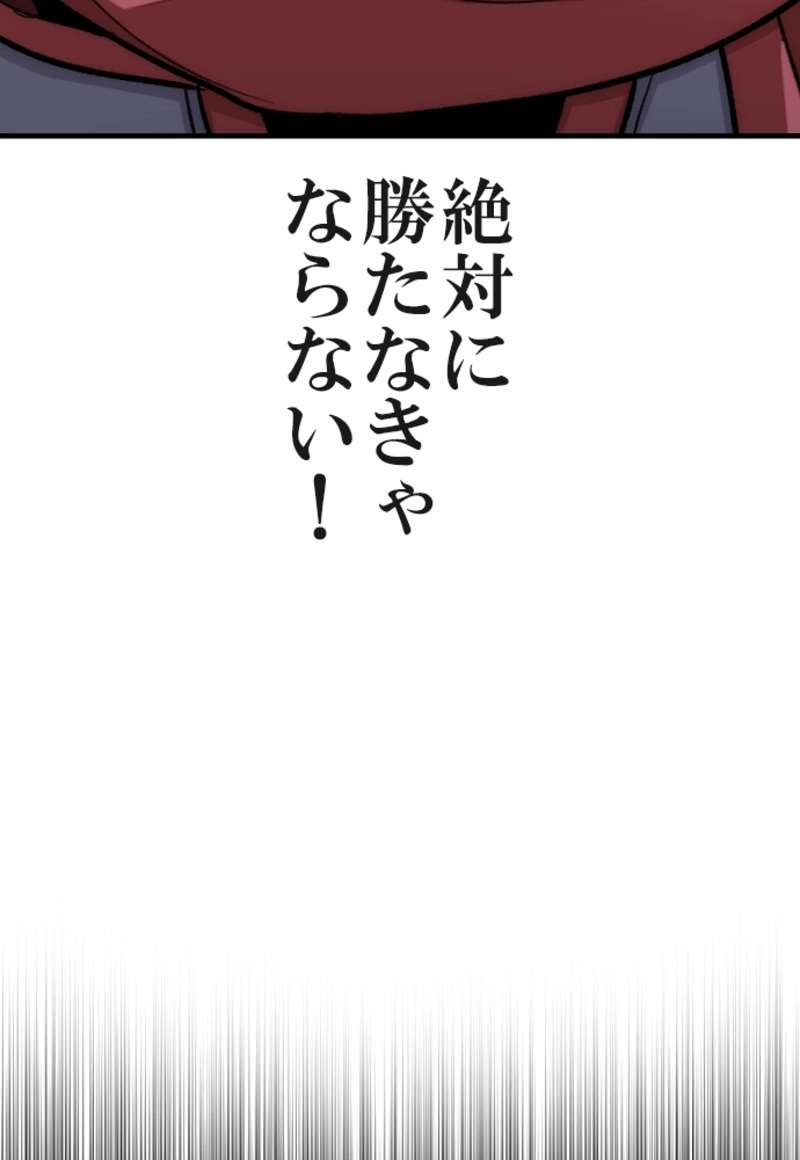 絶対に
勝たなきゃ
ならない！